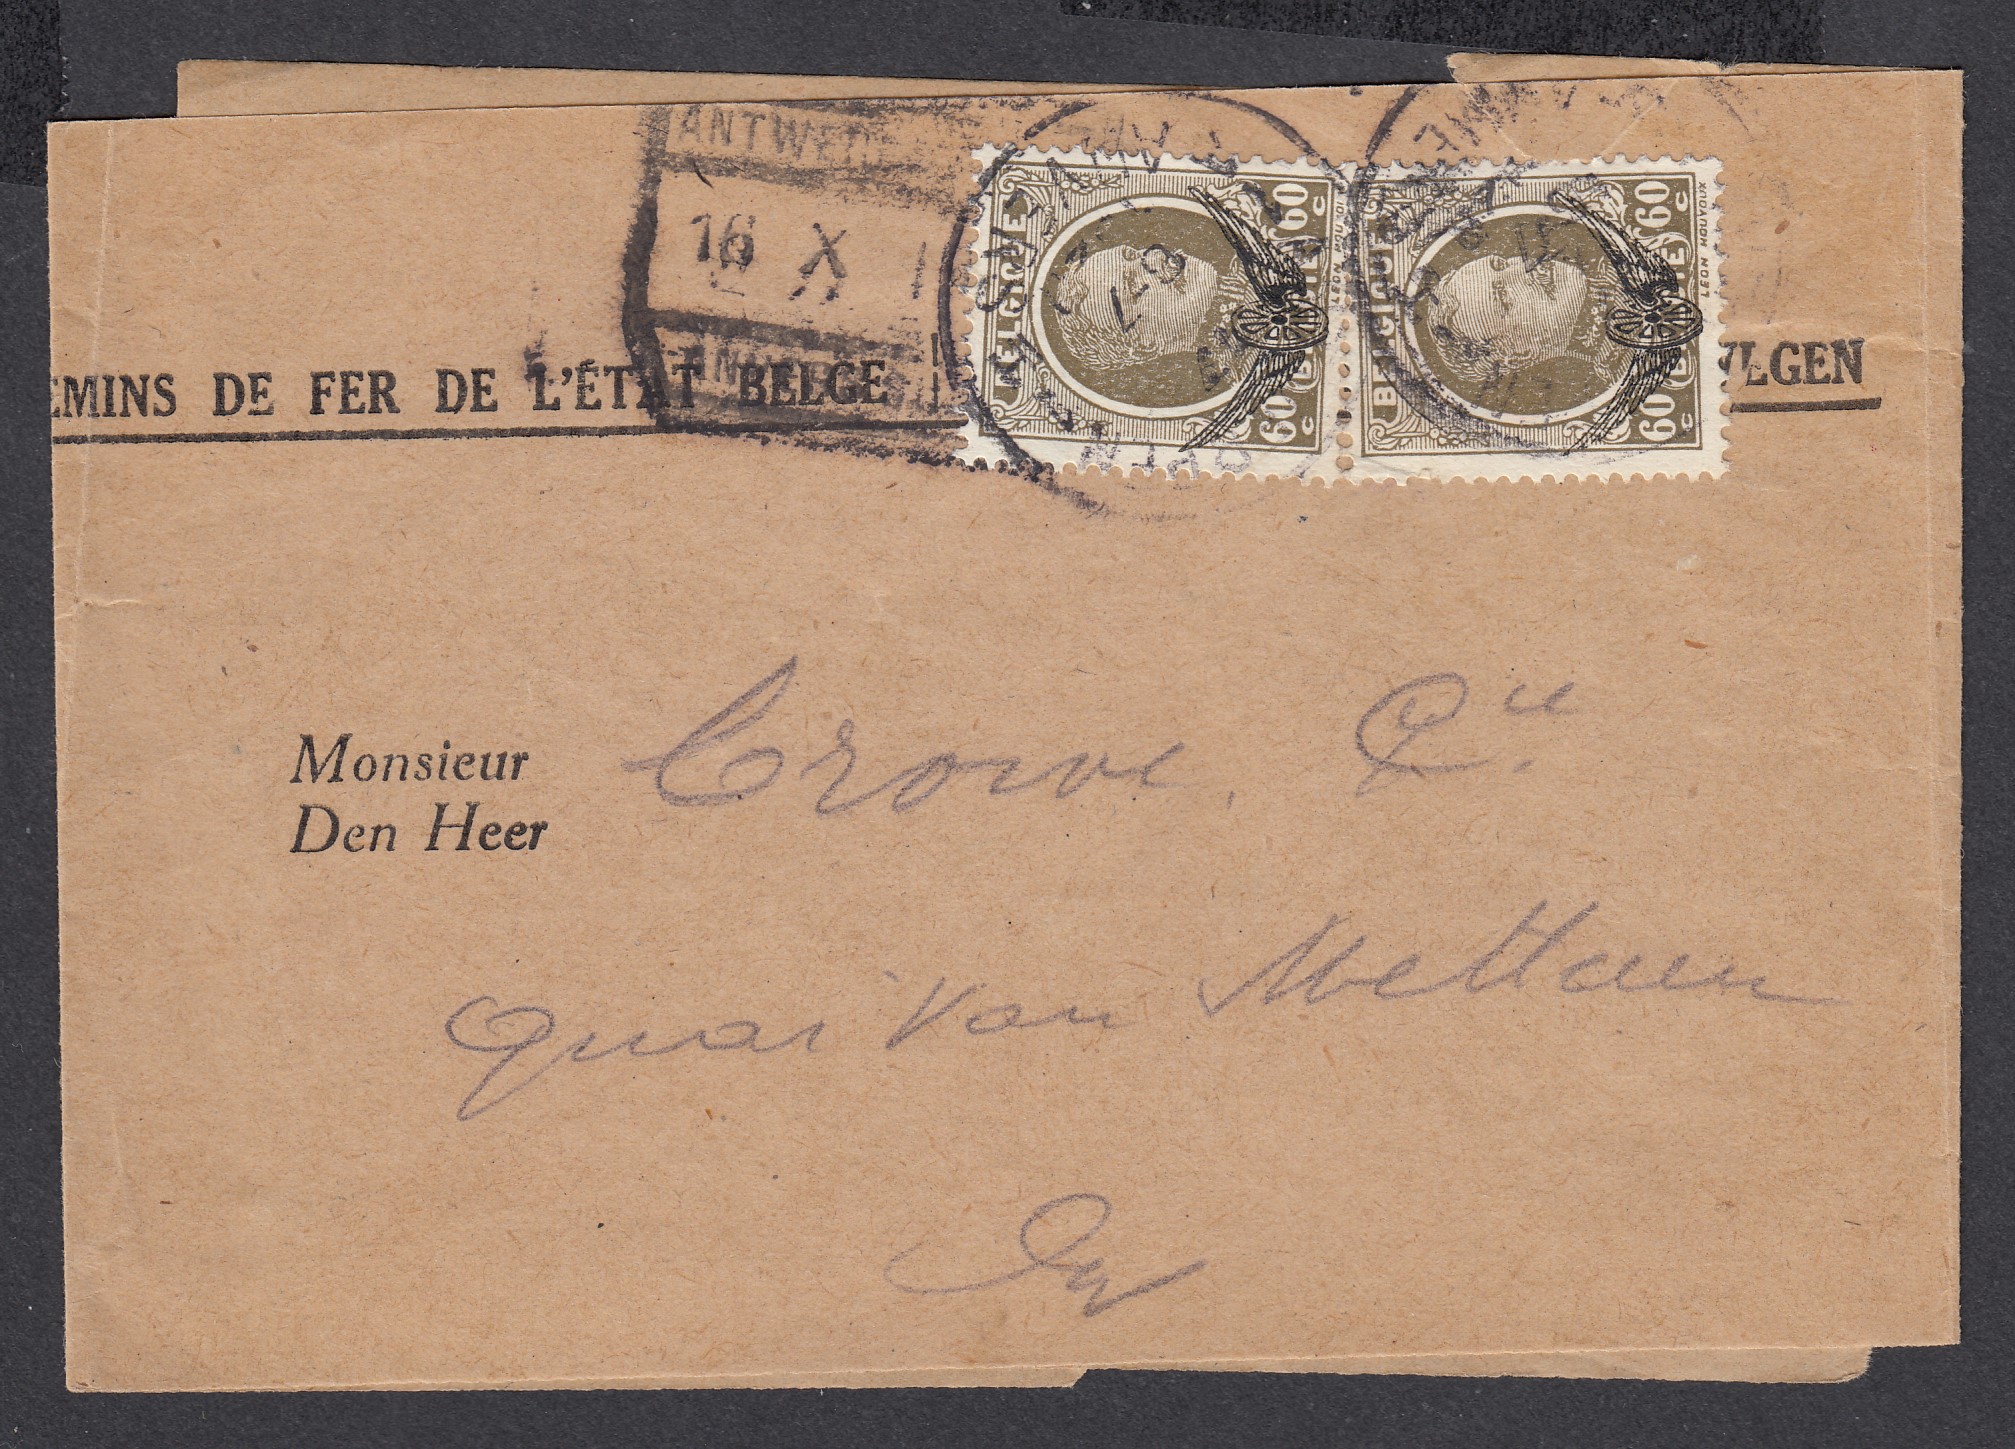 ANTWERPEN
16 X
ANVERS
EMINS DE FER DE L'ÉTAT BELGE
LGEN
BELGIQUE BELGIË 60 c 60 c
BELGIQUE BELGIË 60 c 60 c LEON HOUYOUX
Monsieur
Den Heer
Crowe, Cie
Quai Van Metteren